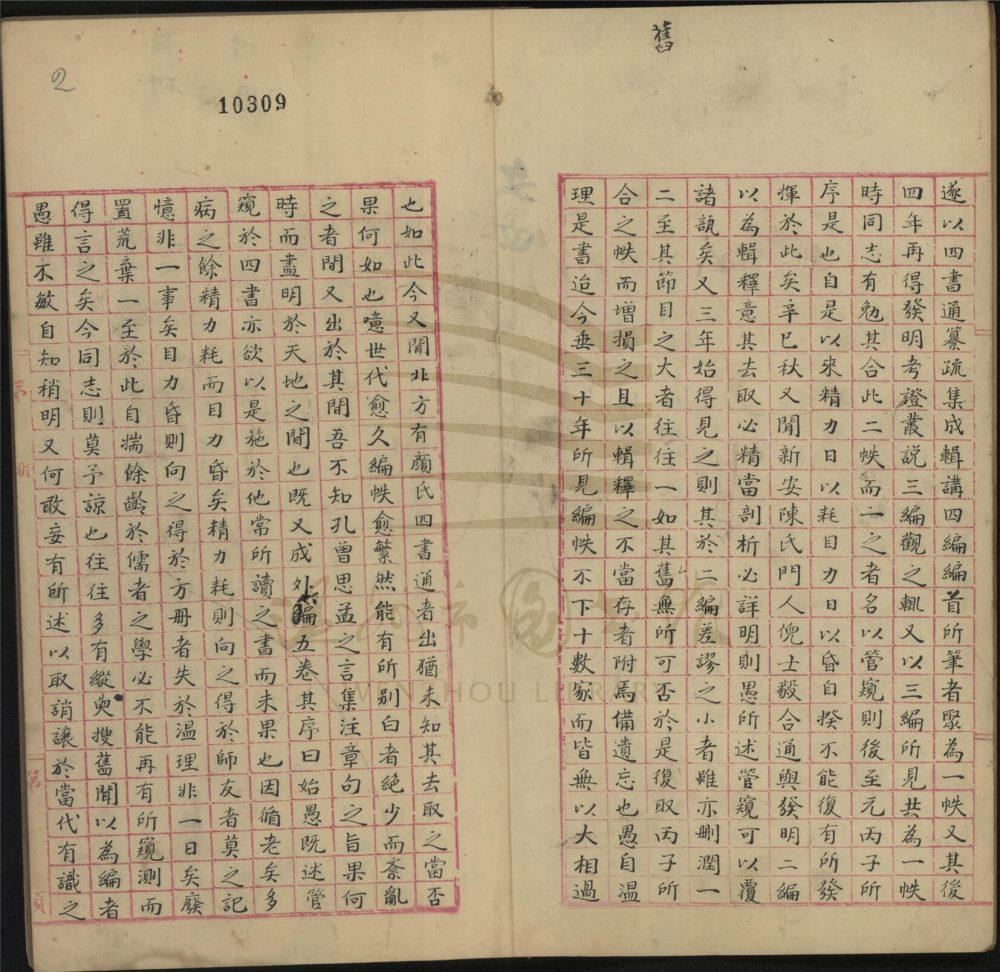 舊
遂以四書通纂疏集成輯講四編編首所筆者聚為一帙又其後
四年再得發明考證叢說三編觀之輒又以三編所見共為一帙
時同志有勉其合此二帙而一之者名以管窺則後至元丙子所
序是也自是以來精力日以耗目力日以昏自揆不能復有所發
揮於此矣辛巳秋又聞新安陳氏門人倪士毅合通與發明二編
以為輯釋意其去取必精當剖析必詳明則愚所述管窺可以覆
諸瓿矣又三年始得見之則其於二編差謬之小者雖亦刪潤一
二至其節目之大者往往一如其舊無所可否於是復取丙子所
合之帙而增損之且以輯釋之不當存者附焉備遺忘也愚自溫
理是書迨今垂三十年所見編帙不下十數家而皆無以大相過
2
10309
也如此今又聞北方有顏氏四書通者出猶未知其去取之當否
果何如也噫世代愈久編帙愈繁然能有所別白者絕少而紊亂
之者間又出於其間吾不知孔曾思孟之言集注章句之旨果何
時而盡明於天地之間也既又成外編五卷其序曰始愚既述管
窺於四書亦欲以是施於他常所讀之書而未果也因循老矣多
病之餘精力耗而目力昏矣精力耗則向之得於師友者莫之記
憶非一事矣目力昏則向之得於方冊者失於溫理非一日矣廢
置荒棄一至於此自揣餘齡於儒者之學必不能再有所窺測而
得言之矣今同志則莫予諒也往往多有縱臾搜舊聞以為編者
愚雖不敏自知稍明又何敢妄有所述以取誚讓於當代有識之